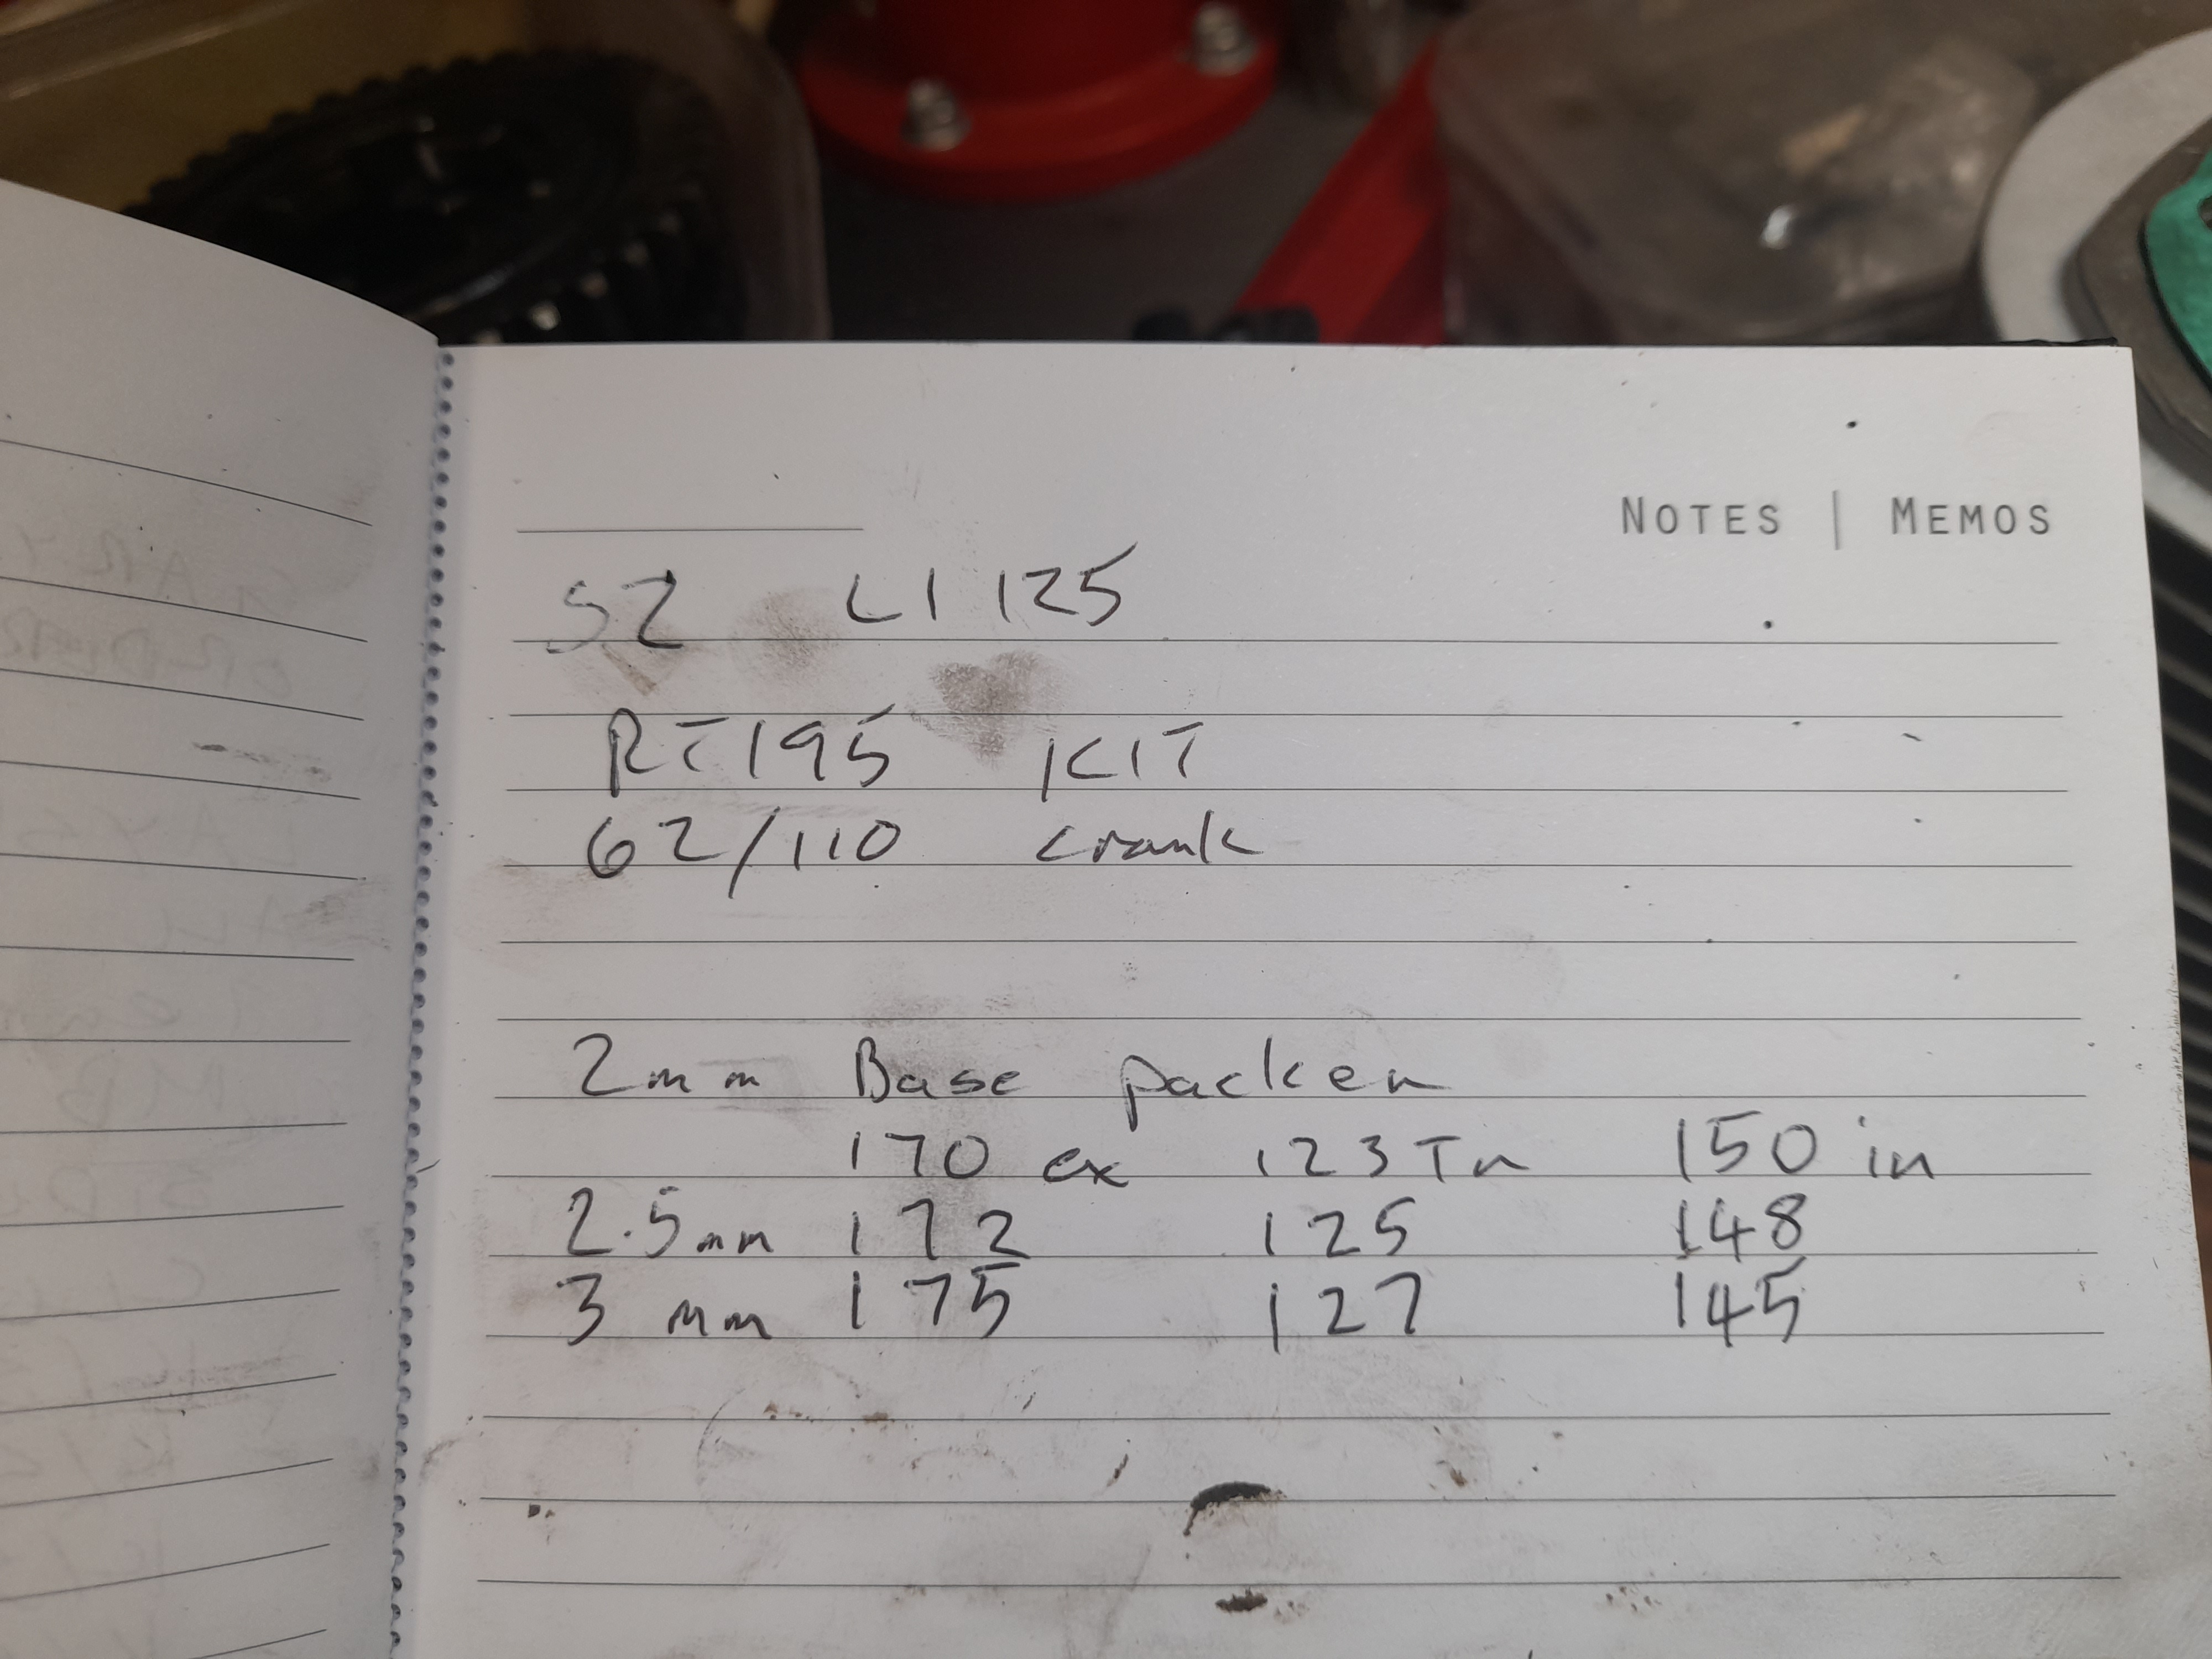 NOTES | MEMOS
S2 LI 125
RT195 KIT
62/110 crank
2mm Base packer
170 ex 123 Tr 150 in
2.5mm 172 125 148
3 mm 175 127 145